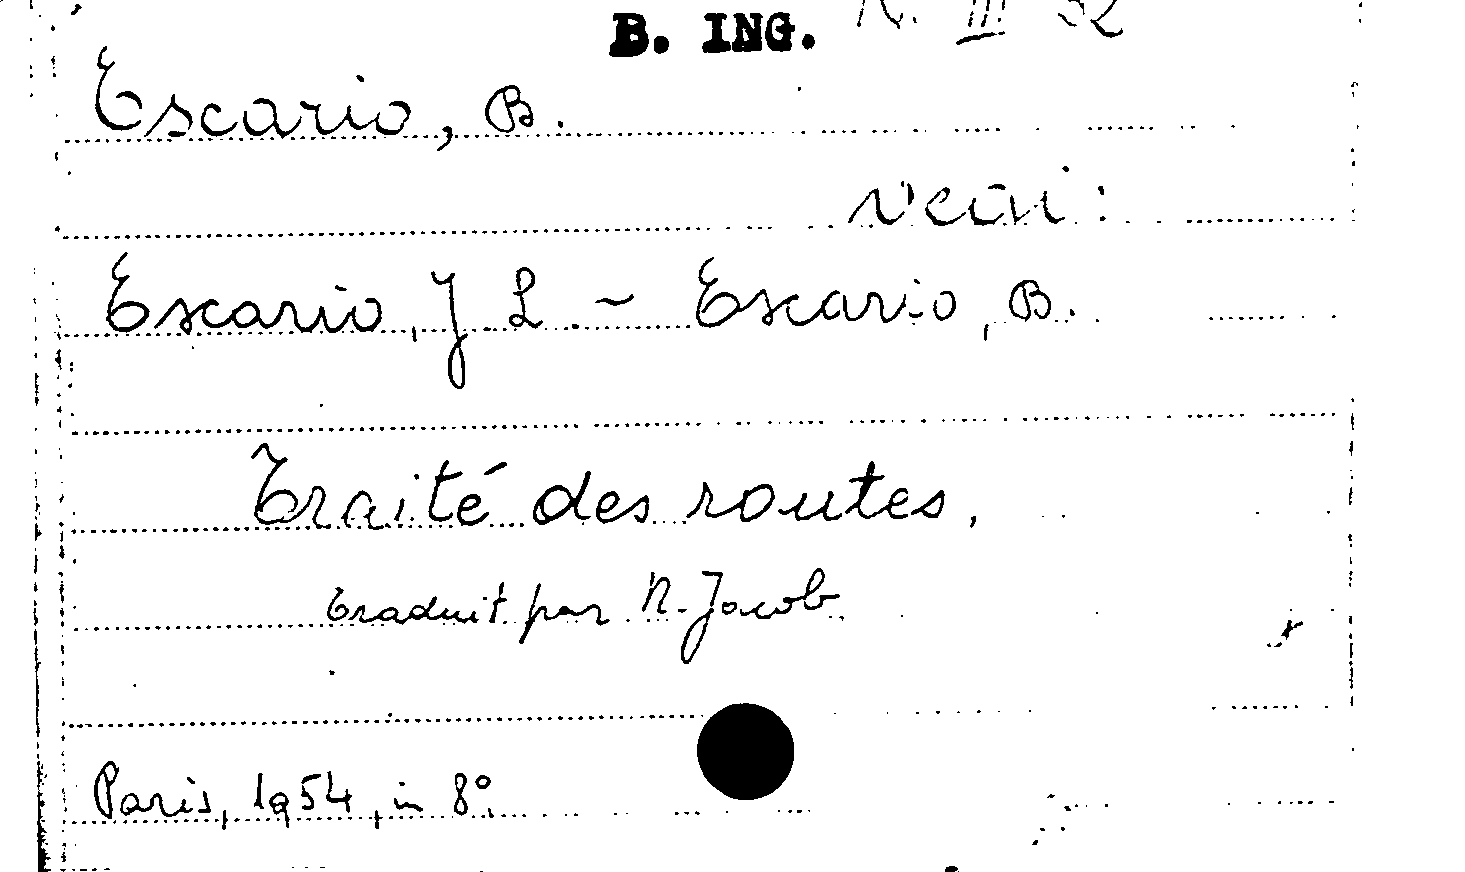 B. ING. R. III 32
Escario, B.
Escario, J L. - Escario, B.
Traité des routes.
traduit par N. Jacob
Paris, 1954, in 8°.